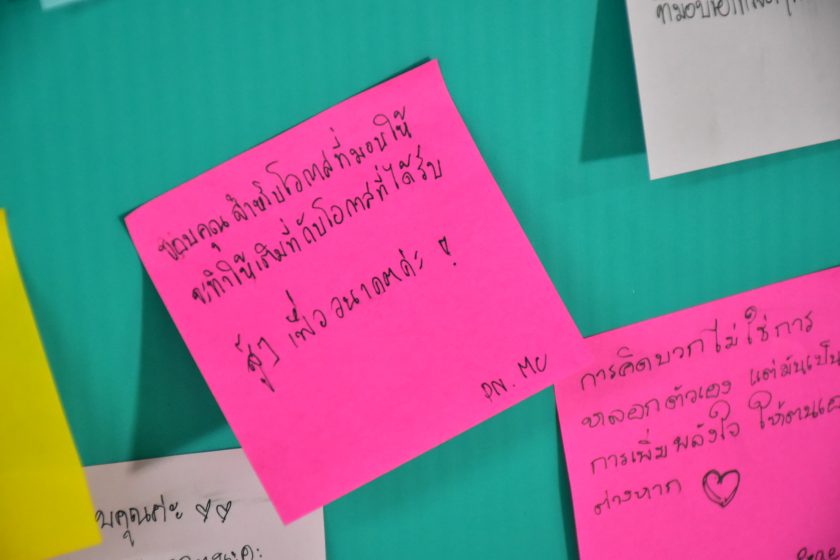 ขอบคุณสำหรับโอกาสที่มอบให้
จะทำให้เต็มที่กับโอกาสที่ได้รับ
สู้ๆ เพื่ออนาคตค่ะ !
PN. MC
การคิดบวก ไม่ใช่การ
หลอกตัวเอง แต่มันเป็น
การเพิ่มพลังใจ ให้ตนเอ
ต่างหาก ♡
บคุณค่ะ ♡♡